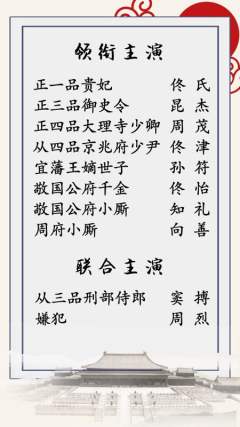 领衔主演
正一品貴妃 佟氏
正三品御史令 昆杰
正四品大理寺少卿 周茂
从四品京兆府少尹 佟津
宜藩王嫡世子 孙符
敌国公府千金 佟怡
敌国公府小厮 知礼
周府小厮 向善
联合主演
从三品刑部侍郎 窦搏
嫌犯 周烈